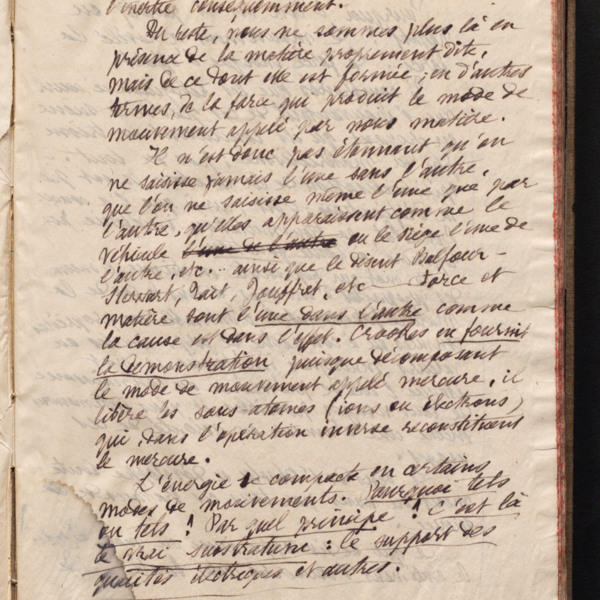 l'inertie conséquemment.
Du reste, nous ne sommes plus là en
présence de la matière proprement dite,
mais de ce dont elle est formée ; en d'autres
termes, à la force qui produit le mode de
mouvement appelé par nous matière.
Il n'est donc pas étonnant qu'on
ne saisisse jamais l'une sans l'autre,
que l'on ne saisisse même l'une que par
l'autre, qu'elles apparaissent comme le
véhicule l'une de l'autre ou le siège l'une de
l'autre, etc... ainsi que le disent Balfour-
Stewart, Tait, Jouffret, etc — Force et
matière sont l'une dans l'autre comme
la cause est dans l'effet. Crookes en fournit
la démonstration puisque décomposant
le mode de mouvement appelé mercure, il
libère les sous atomes (ions ou électrons)
qui, dans l'opération inverse reconstituent
le mercure.
L'énergie se compacte en certains
modes de mouvements. Pourquoi tels
ou tels ? Par quel principe ? C'est là
le vrai substratum : le support des
qualités électriques et autres.